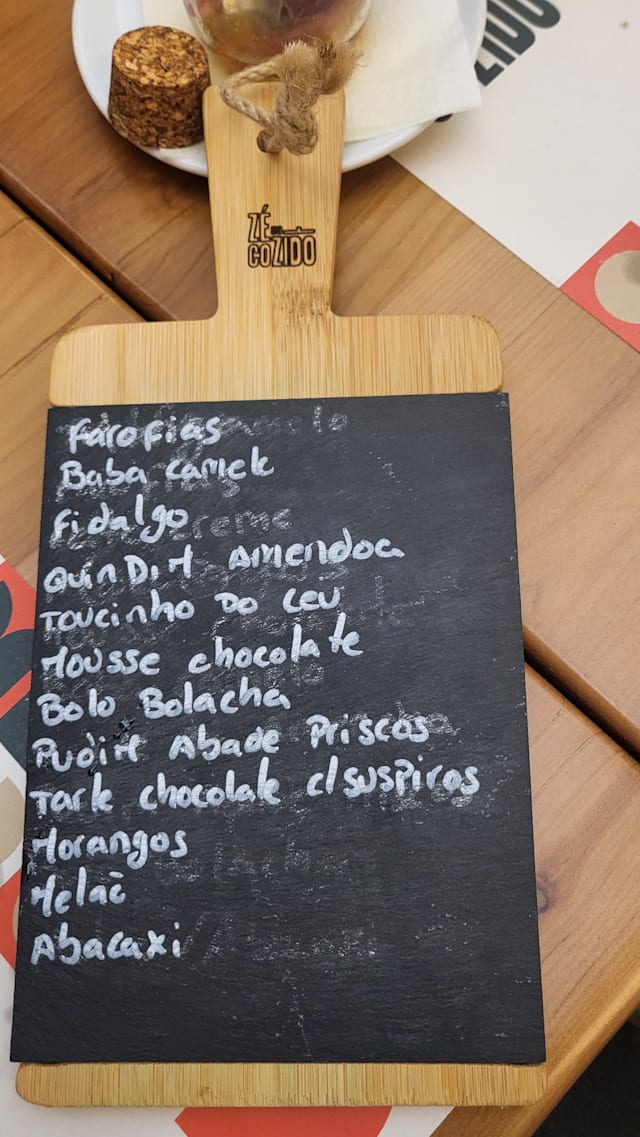 ZIDO
ZÉ
COZIDO
Farofias
Baba Camele
Fidalgo
QuinDiM AMendoa
Toucinho Do Ceu
Mousse chocolate
Bolo Bolacha
PudiM Abade Priscos
Tarte chocolate c/suspiros
Morangos
Melaõ
Abacaxi